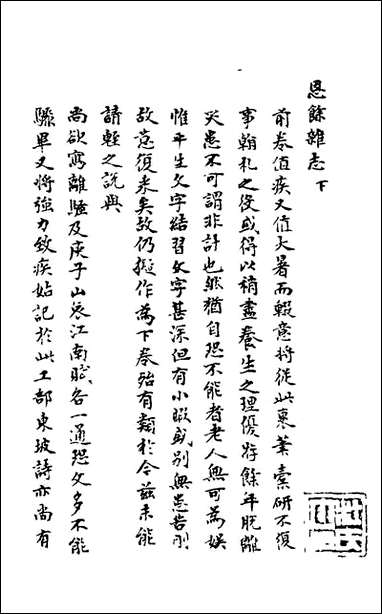 恩餘雜志 下
前卷值疾又值大暑而輟意將從此裹筆橐研不復
事翰札之役或得以稍盡養生之理優游餘年脫離
災患不可謂非計也然猶自恐不能者老人無可為娛
惟平生文字結習文字甚深但有小暇或別無患苦則
故意復來矣故仍擬作為下卷殆有類於今茲未能
請輕之說與
尚欲寫離騷及庾子山哀江南賦各一通恐文多不能
驟畢又將強力致疾姑記於此工部東坡詩亦尚有